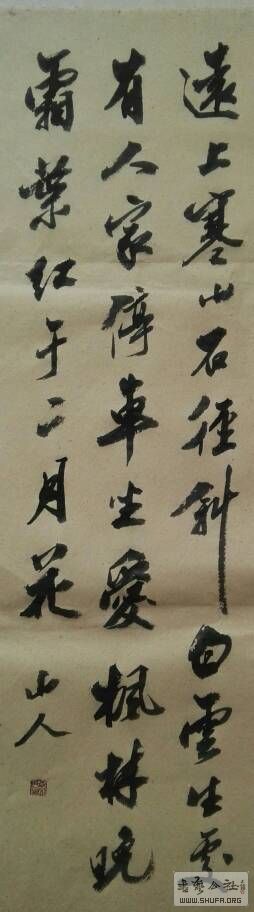 遠上寒山石徑斜白雲生處
有人家停車坐愛楓林晚
霜葉红于二月花
山人
書法公社
WWW.SHUFA.ORG